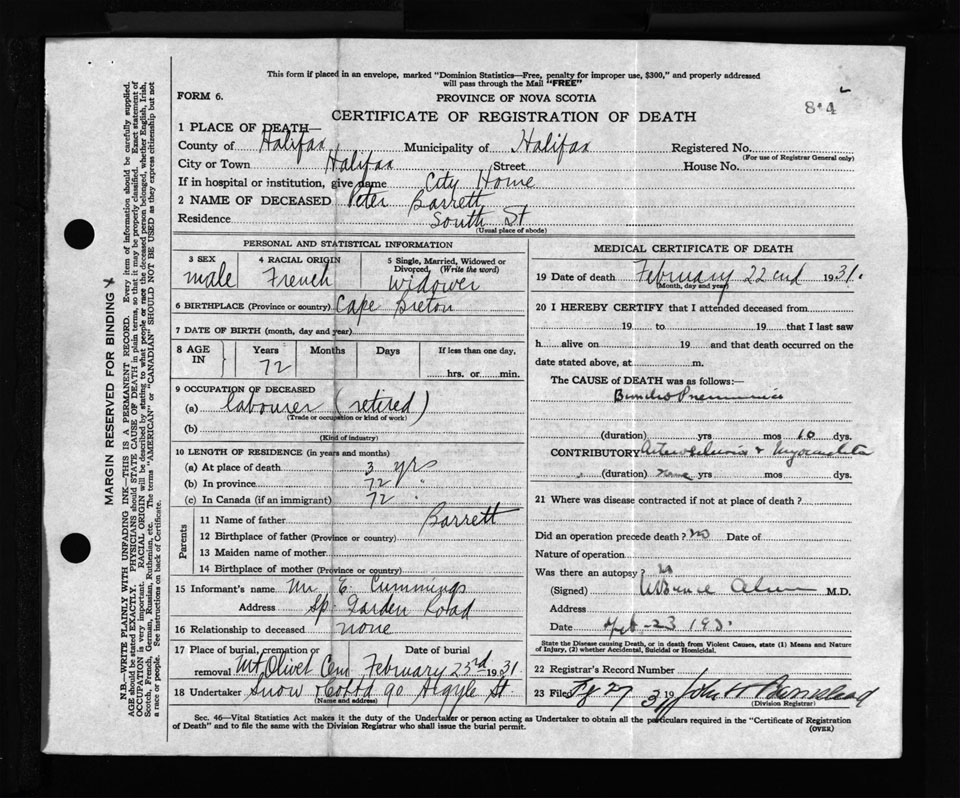 This form if placed in an envelope, marked "Dominion Statistics—Free, penalty for improper use, $300," and properly addressed
will pass through the Mail "FREE"
FORM 6.
PROVINCE OF NOVA SCOTIA
814
CERTIFICATE OF REGISTRATION OF DEATH
1 PLACE OF DEATH—
County of Halifax Municipality of Halifax Registered No.
(For use of Registrar General only)
City or Town Halifax Street House No.
If in hospital or institution, give name City Home
2 NAME OF DECEASED Peter Barrett
Residence South St
(Usual place of abode)
PERSONAL AND STATISTICAL INFORMATION
3 SEX 4 RACIAL ORIGIN 5 Single, Married, Widowed or Divorced, (Write the word)
male French widower
6 BIRTHPLACE (Province or country) Cape Breton
7 DATE OF BIRTH (month, day and year)
8 AGE IN Years Months Days If less than one day,
72 hrs. or min.
9 OCCUPATION OF DECEASED
(a) labourer (retired)
(Trade or occupation or kind of work)
(b)
(Kind of industry)
10 LENGTH OF RESIDENCE (in years and months)
(a) At place of death 3 yrs
(b) In province 72 "
(c) In Canada (if an immigrant) 72 "
Parents
11 Name of father Barrett
12 Birthplace of father (Province or country)
13 Maiden name of mother
14 Birthplace of mother (Province or country)
15 Informant's name Mr E. Cummings
Address Sp. Garden Road
16 Relationship to deceased none
17 Place of burial, cremation or Date of burial
removal Mt Olivet Cem February 23rd 1931
18 Undertaker Snow & Co Ltd 90 Argyle St.
(Name and address)
MEDICAL CERTIFICATE OF DEATH
19 Date of death February 22cnd 1931.
(Month, day and year)
20 I HEREBY CERTIFY that I attended deceased from
19 to 19 that I last saw
h alive on 19 and that death occurred on the
date stated above, at m.
The CAUSE of DEATH was as follows:—
Broncho Pneumonia
(duration) yrs mos 10 dys.
CONTRIBUTORY Arteriosclerosis & Myocarditis
(duration) yrs mos dys.
21 Where was disease contracted if not at place of death?
Did an operation precede death? no Date of
Nature of operation
Was there an autopsy? no
(Signed) M.D.
Address
Date Feb-23 1931
State the Disease causing Death, or in death from Violent Causes, state (1) Means and Nature of Injury, (2) whether Accidental, Suicidal or Homicidal.
22 Registrar's Record Number
23 Filed 27 19 31 John H
(Division Registrar)
Sec. 46—Vital Statistics Act makes it the duty of the Undertaker or person acting as Undertaker to obtain all the particulars required in the "Certificate of Registration
of Death" and to file the same with the Division Registrar who shall issue the burial permit.
(OVER)
MARGIN RESERVED FOR BINDING
N.B.—WRITE PLAINLY WITH UNFADING INK—THIS IS A PERMANENT RECORD. Every item of information should be carefully supplied.
AGE should be stated EXACTLY. PHYSICIANS should STATE CAUSE OF DEATH in plain terms, so that it may be properly classified. Exact statement of
OCCUPATION is very important. RACIAL ORIGIN will be described by stating to what people or race the deceased person belonged, whether English, Irish,
Scotch, French, German, Russian, Ruthenian, etc. The terms "AMERICAN" or "CANADIAN" SHOULD NOT BE USED as they express citizenship but not
a race or people. See instructions on back of Certificate.